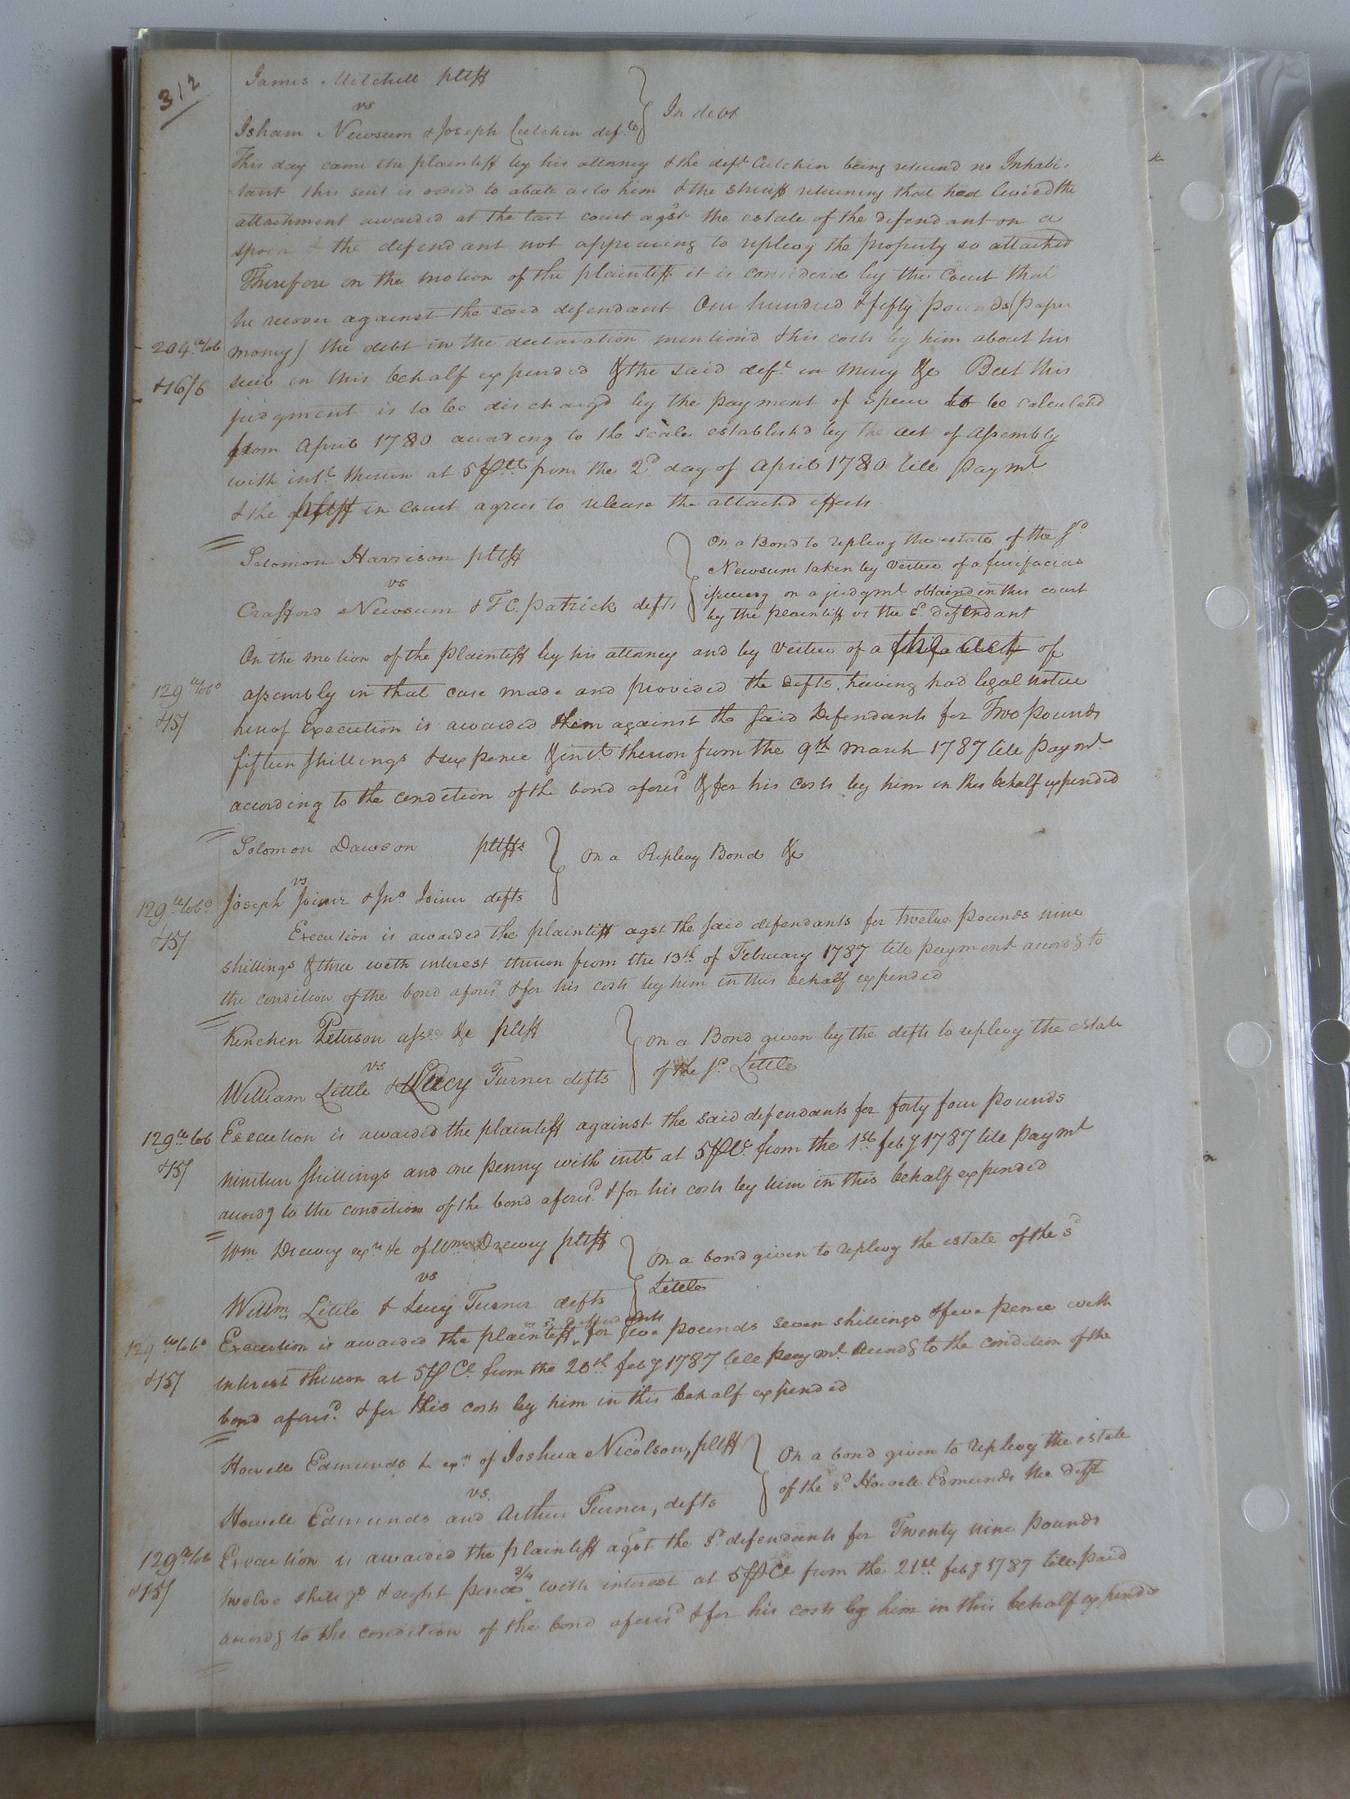 312
James Mitchell pltff
vs
Isham Newsum & Joseph Cutchin defts
In debt
This day came the plaintiff by his attorney & the deft Cutchin being returnd no Inhabi-
tant this suit is ordd to abate as to him & the sheriff returning that had levied the
attachment awarded at the last court agst the estate of the defendant on a
spoon & the defendant not appearing to replevy the property so attached
Therefore on the motion of the plaintiff it is considerd by the Court that
he recover against the said defendant One hundred & fifty pounds (paper
204 lb tob
money) the debt in the declaration mentiond & his costs by him about his
&16/6
suit in this behalf expended & the said deft in mercy &c But this
judgment is to be dischargd by the payment of Specie to be calculated
from April 1780 according to the scale establishd by the act of Assembly
with intt thereon at 5 pCt from the 2d day of April 1780 till paymt
& the pltff in court agrees to release the attachd effects
Solomon Harrison pltff
vs
Crafford Newsum & T C. Patrick defts
On a Bond to replevy the estate of the sd
Newsum taken by vertue of a fieri facias
issuing on a judgmt obtaind in this court
by the plaintiff vs the sd defendant
On the motion of the plaintiff by his attorney and by vertue of a the act of
129 lb tobo
assembly in that case made and provided the defts. having had legal notice
&15/
hereof Execution is awarded them against the said Defendants for Two pounds
fifteen shillings & six pence & intt thereon from the 9th march 1787 till paymt.
according to the condition of the bond aforesd & for his costs by him in this behalf expended
Solomon Dawson pltffs
vs
Joseph Joiner & Jno Joiner defts
On a Replevy Bond &c
129 lb tobo
&15/
Execution is awarded the plaintiff agst the said defendants for twelve pounds nine
shillings & three with interest thereon from the 13th of February 1787 till payment accordg to
the condition of the bond aforesd & for his costs by him in this behalf expended
Kinchen Peterson assee &c pltff
vs
William Little & Lucy Turner defts
On a Bond given by the defts to replevy the estate
of the sd Little
129 lb tob
Execution is awarded the plaintiff against the said defendants for forty four pounds
&15/
nineteen shillings and one penny with intt at 5 pCt from the 1st feby 1787 till paymt
accordg to the condition of the bond aforesd & for his costs by him in this behalf expended
Wm Drewry exr &c of Wm Drewry pltff
vs
Willm Little & Lucy Turner defts
On a bond given to replevy the estate of the sd
Little
129 lb tobo
Execution is awarded the plaintiff for five pounds seven shillings & five pence with
&15/
interest thereon at 5 pCt from the 20th feby 1787 till paymt accordg to the condition of the
bond aforesd. & for his costs by him in this behalf expended
Howell Edmunds & exrs of Joshua Nicolson, pltff
vs.
Howell Edmunds and Arthur Turner, defts
On a bond given to replevy the estate
of the sd Howell Edmunds the deft
129 lb tob
Execution is awarded the plaintiff agst the sd defendants for Twenty nine pounds
&15/
twelve shillgs & eight pence 3/4 with interest at 5 pCt from the 21st feby 1787 till paid
accordg to the condition of the bond aforesd & for his costs by him in this behalf expended